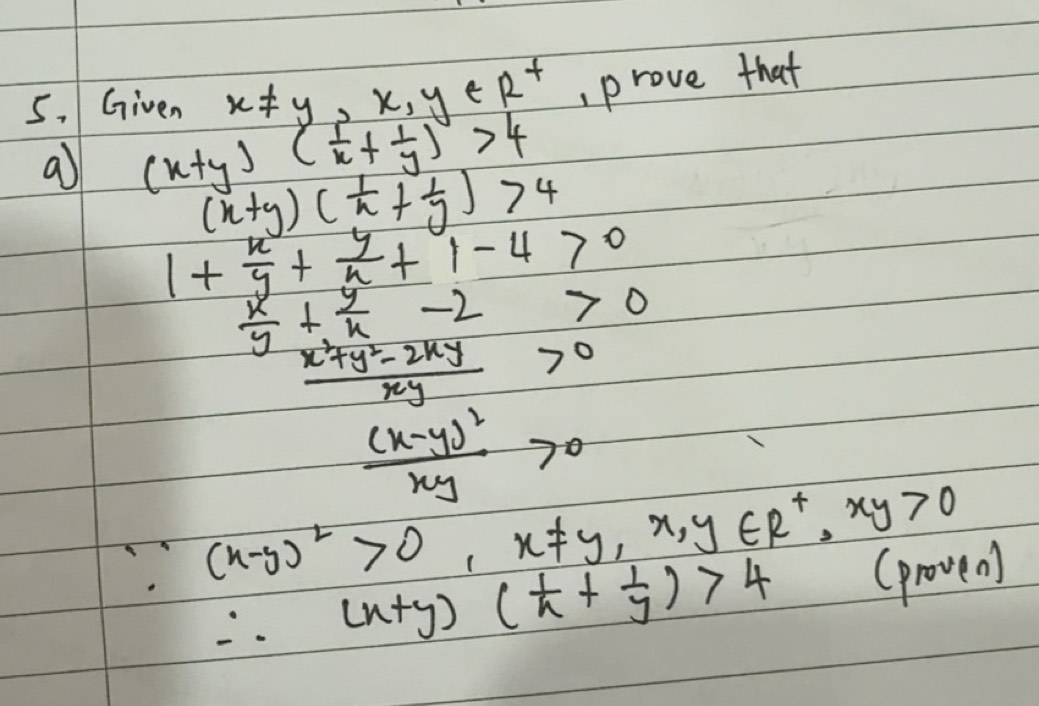 5. Given x ≠ y, x, y ∈ R⁺, prove that
a) (x+y) (1/x + 1/y) > 4
(x+y) (1/x + 1/y) > 4
1 + x/y + y/x + 1 - 4 > 0
x/y + y/x - 2 > 0
(x²+y²-2xy)/xy > 0
(x-y)²/xy > 0
∵ (x-y)² > 0, x ≠ y, x, y ∈ R⁺, xy > 0
∴ (x+y) (1/x + 1/y) > 4 (proven)